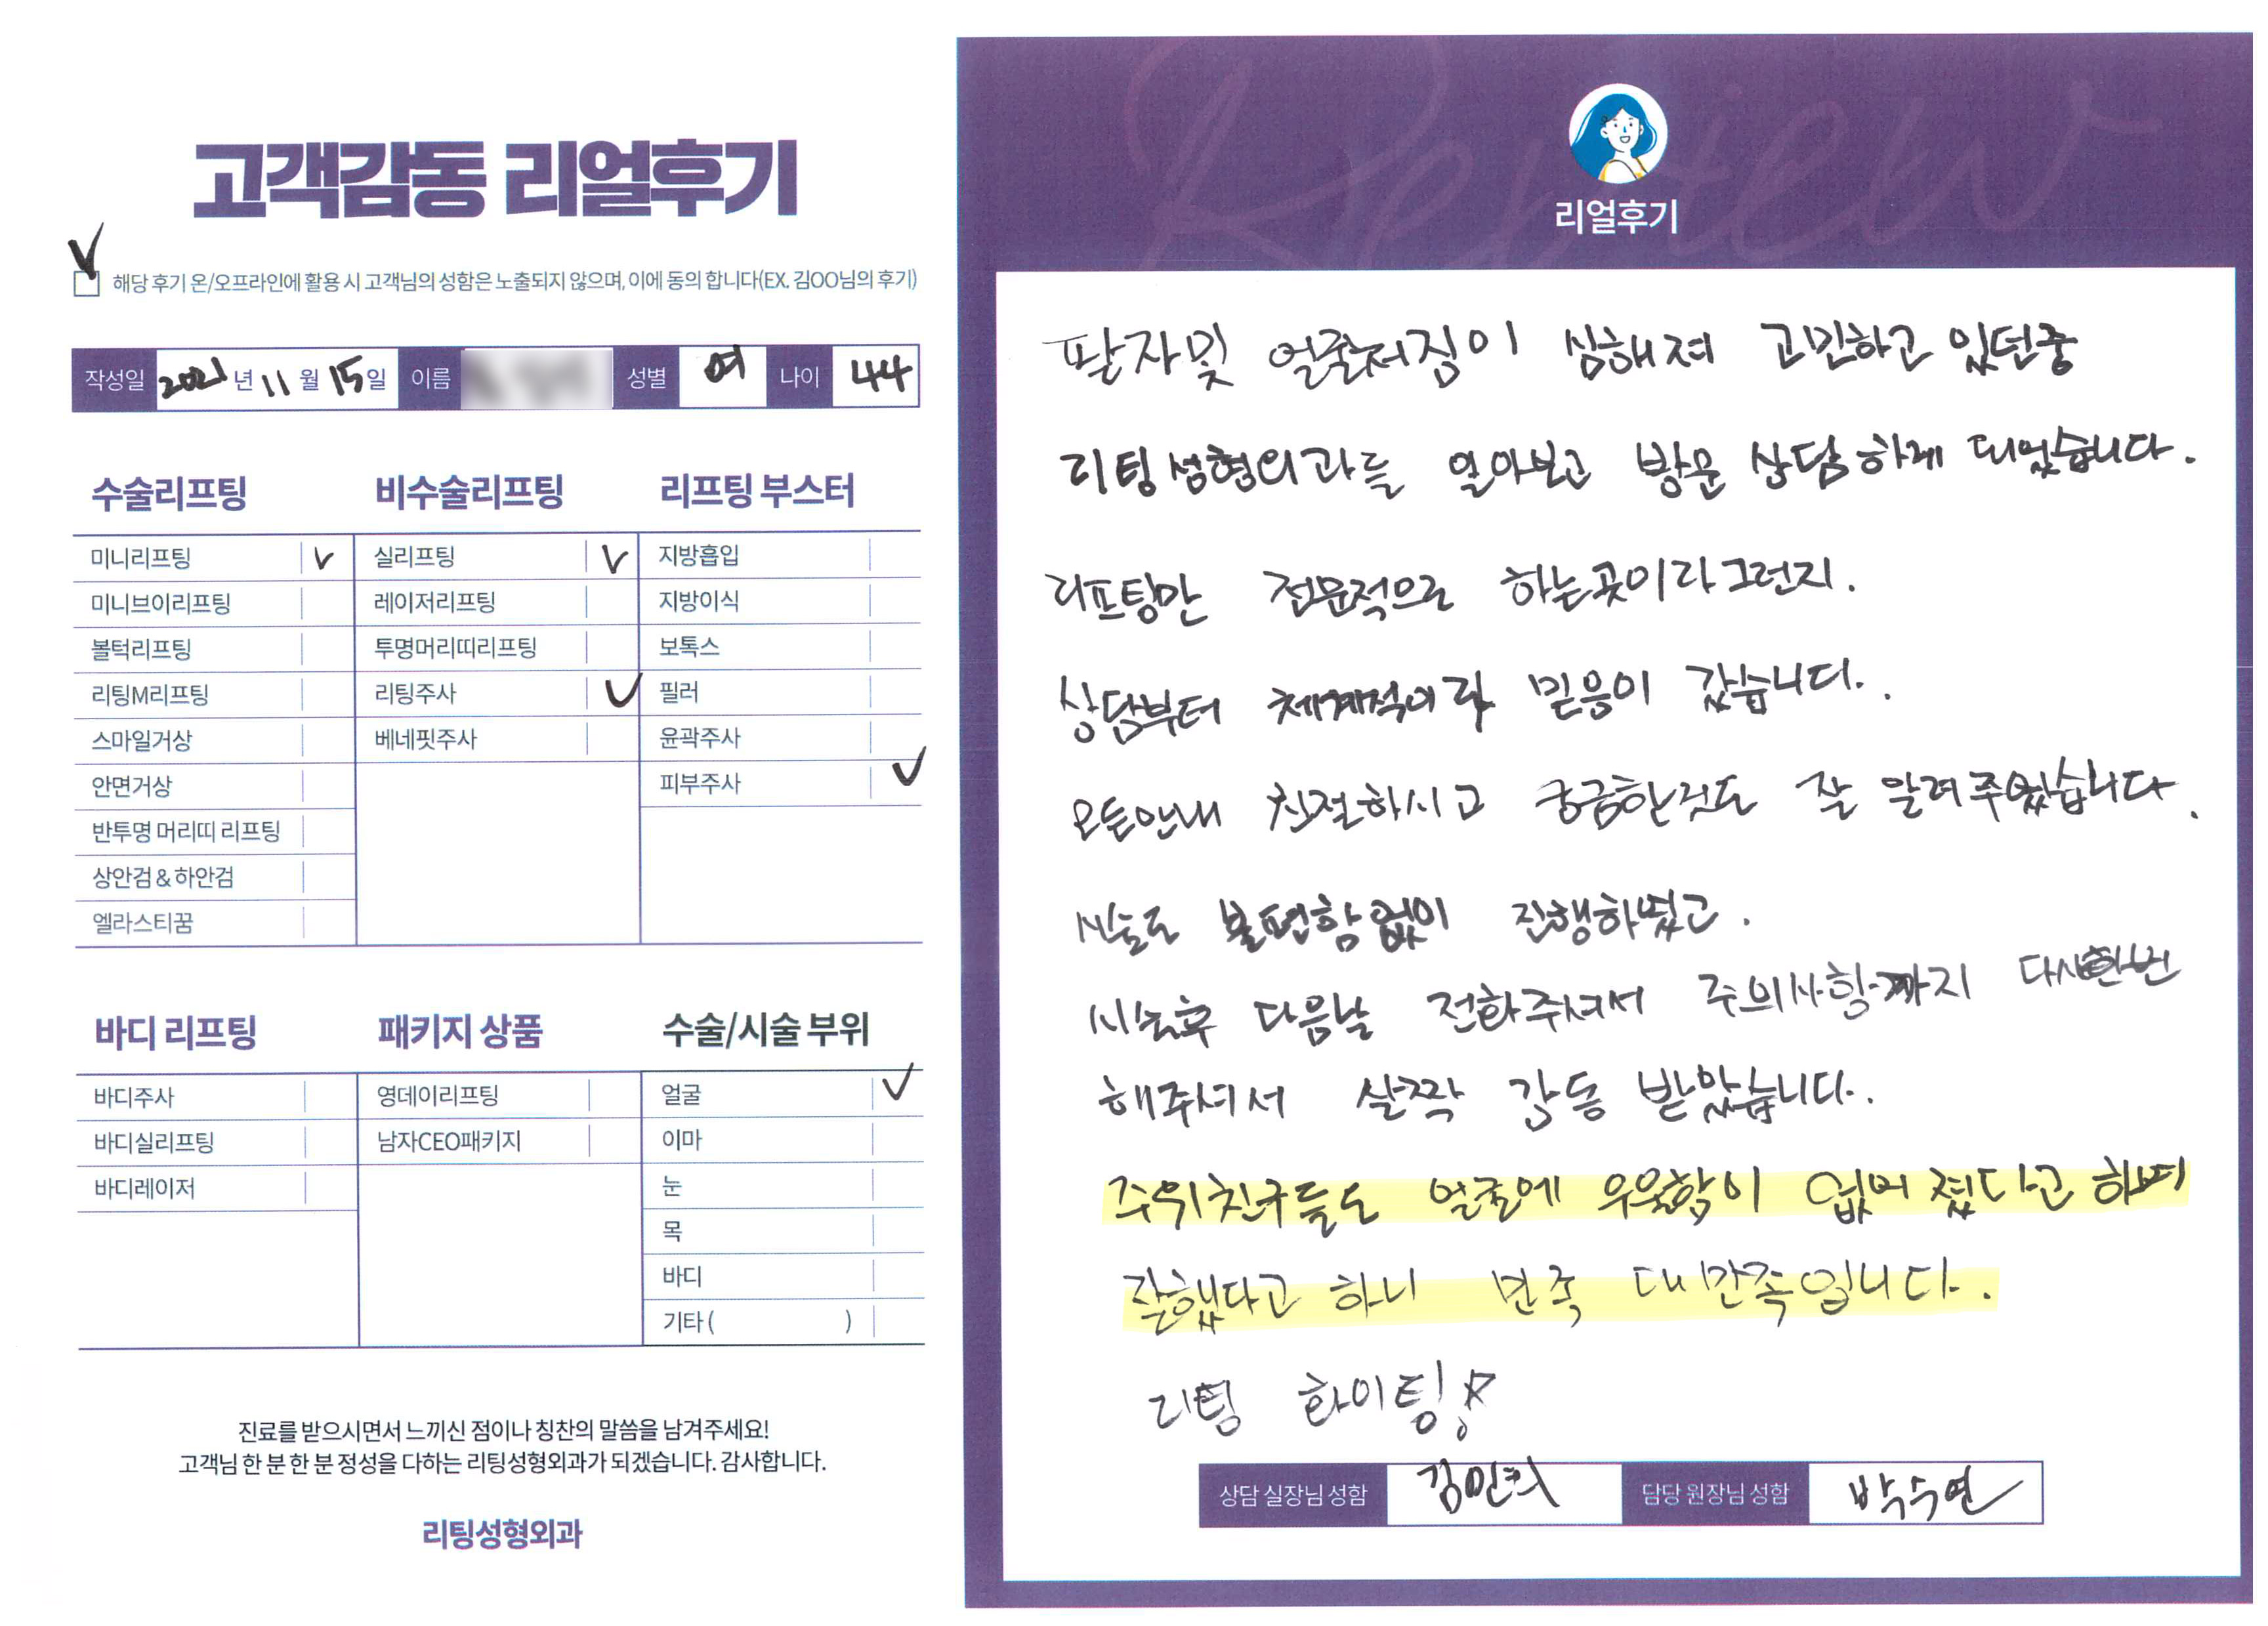 고객감동 리얼후기
해당 후기 온/오프라인에 활용 시 고객님의 성함은 노출되지 않으며, 이에 동의 합니다(EX. 김OO님의 후기)
작성일 2021 년 11 월 15 일 이름 성별 여 나이 44
수술리프팅 비수술리프팅 리프팅 부스터
미니리프팅 ✓ 실리프팅 ✓ 지방흡입
미니브이리프팅 레이저리프팅 지방이식
볼턱리프팅 투명머리띠리프팅 보톡스
리팅M리프팅 리팅주사 ✓ 필러
스마일거상 베네핏주사 윤곽주사
안면거상 피부주사 ✓
반투명 머리띠 리프팅
상안검 & 하안검
엘라스티꿈
바디 리프팅 패키지 상품 수술/시술 부위
바디주사 영데이리프팅 얼굴 ✓
바디실리프팅 남자CEO패키지 이마
바디레이저 눈
목
바디
기타 ( )
진료를 받으시면서 느끼신 점이나 칭찬의 말씀을 남겨주세요!
고객님 한 분 한 분 정성을 다하는 리팅성형외과가 되겠습니다. 감사합니다.
리팅성형외과
Review
리얼후기
팔자및 얼굴처짐이 심해져 고민하고 있던중
리팅성형외과를 알아보고 방문 상담하게 되었습니다.
리프팅만 전문적으로 하는곳이라그런지.
상담부터 체계적이라 믿음이 갔습니다.
모든안내 친절하시고 궁금한것도 잘 알려주셨습니다.
시술도 불편함없이 진행하였고.
시술후 다음날 전화주셔서 주의사항까지 다시한번
해주셔서 살짝 감동 받았습니다.
주위친구들도 얼굴에 우울함이 없어졌다고 하며
잘했다고 하니 만족 대만족입니다.
리팅 화이팅!
상담 실장님 성함 김민희 담당 원장님 성함 박수연